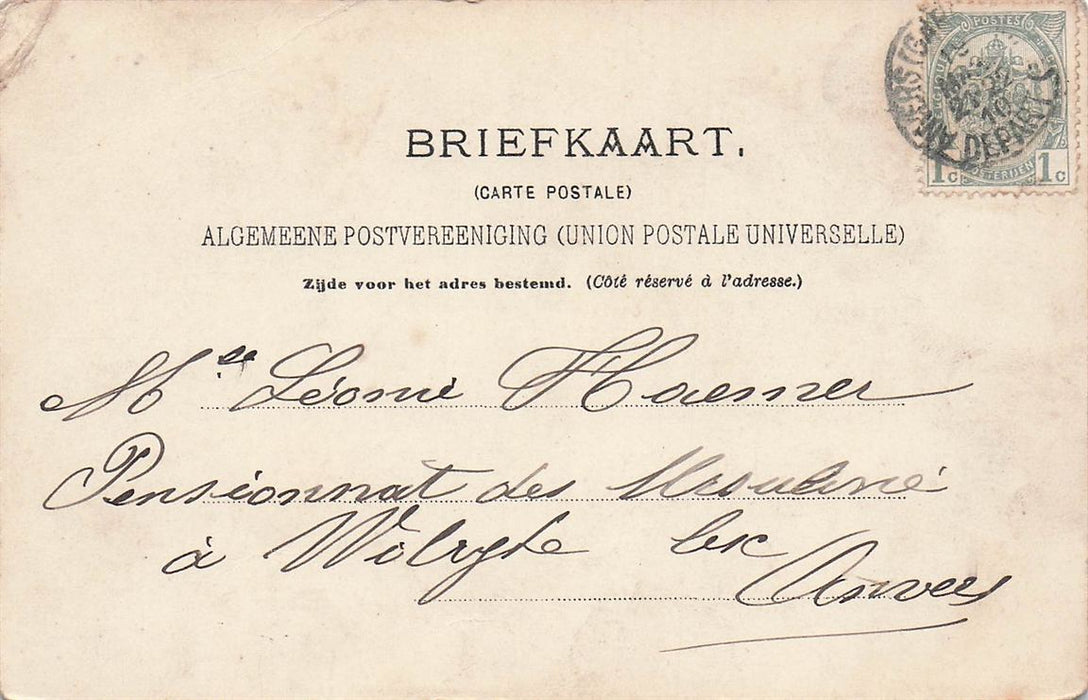 POSTES
1c 1c
ANVERS (GARE
10
DEPART
BRIEFKAART.
(CARTE POSTALE)
ALGEMEENE POSTVEREENIGING (UNION POSTALE UNIVERSELLE)
Zijde voor het adres bestemd. (Côté réservé à l'adresse.)
Mlle Léonie Haemer
Pensionnat des Ursuline
à Wilryck lez
Anvers